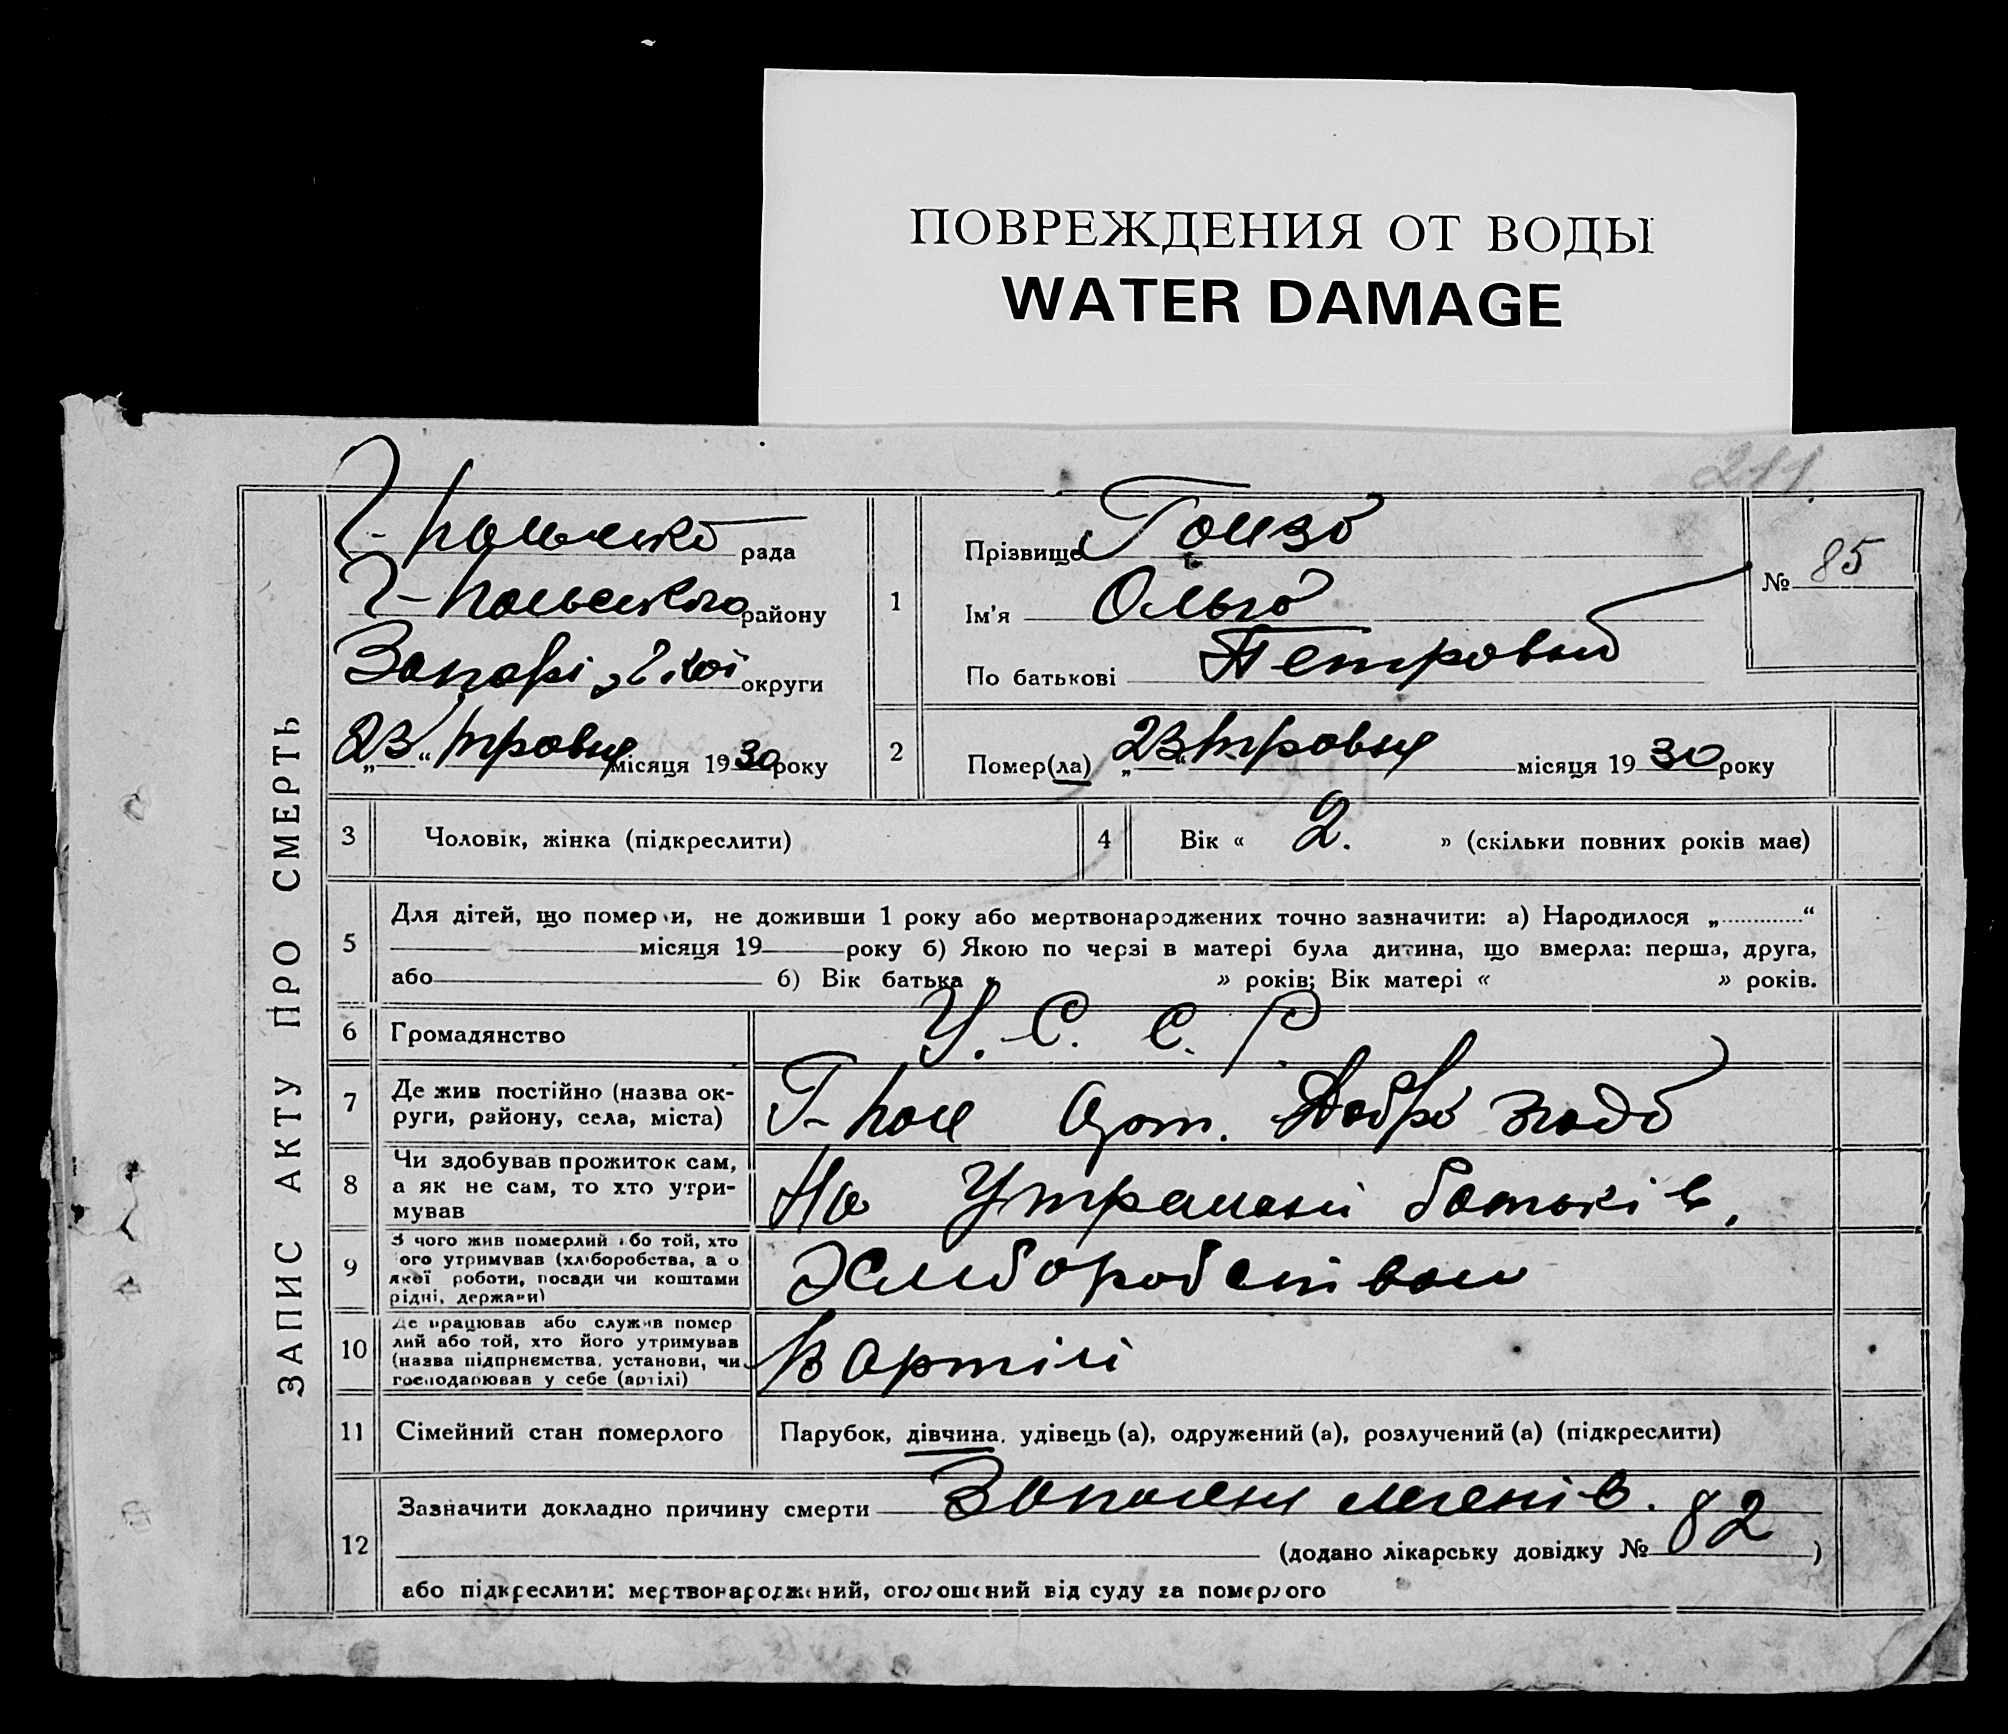 ПОВРЕЖДЕНИЯ ОТ ВОДЫ
WATER DAMAGE
211
ЗАПИС АКТУ ПРО СМЕРТЬ
Г-Польська рада
Г-Польського району
Запоріз округи
„23“ травня місяця 1930 року
1
Прізвище
Ім'я Ольга
По батькові Петровна
№ 85
2
Помер(ла) „23“ травня місяця 1930 року
3
Чоловік, жінка (підкреслити)
4
Вік « 2. » (скільки повних років має)
5
Для дітей, що померли, не доживши 1 року або мертвонароджених точно зазначити: а) Народилося „ “
місяця 19 року б) Якою по черзі в матері була дитина, що вмерла: перша, друга,
або б) Вік батька « » років; Вік матері « » років.
6
Громадянство
У. С. С. Р.
7
Де жив постійно (назва ок-
руги, району, села, міста)
Г-Поле Арт. Добра згода
8
Чи здобував прожиток сам,
а як не сам, то хто утри-
мував
На Утриманні батьків.
9
З чого жив померлий або той, хто
ого утримував (хліборобства, а о
якої роботи, посади чи коштами
рідні, держави)
Хліборобством
10
Де працював або служив помер
лий або той, хто його утримував
(назва підприємства, установи, чи
господарював у себе (артілі)
В артілі
11
Сімейний стан померлого
Парубок, дівчина, удівець (а), одружений (а), розлучений (а) (підкреслити)
12
Зазначити докладно причину смерти Запалення легенів.
(додано лікарську довідку № 82 )
або підкреслити: мертвонароджений, оголошений від суду за померлого